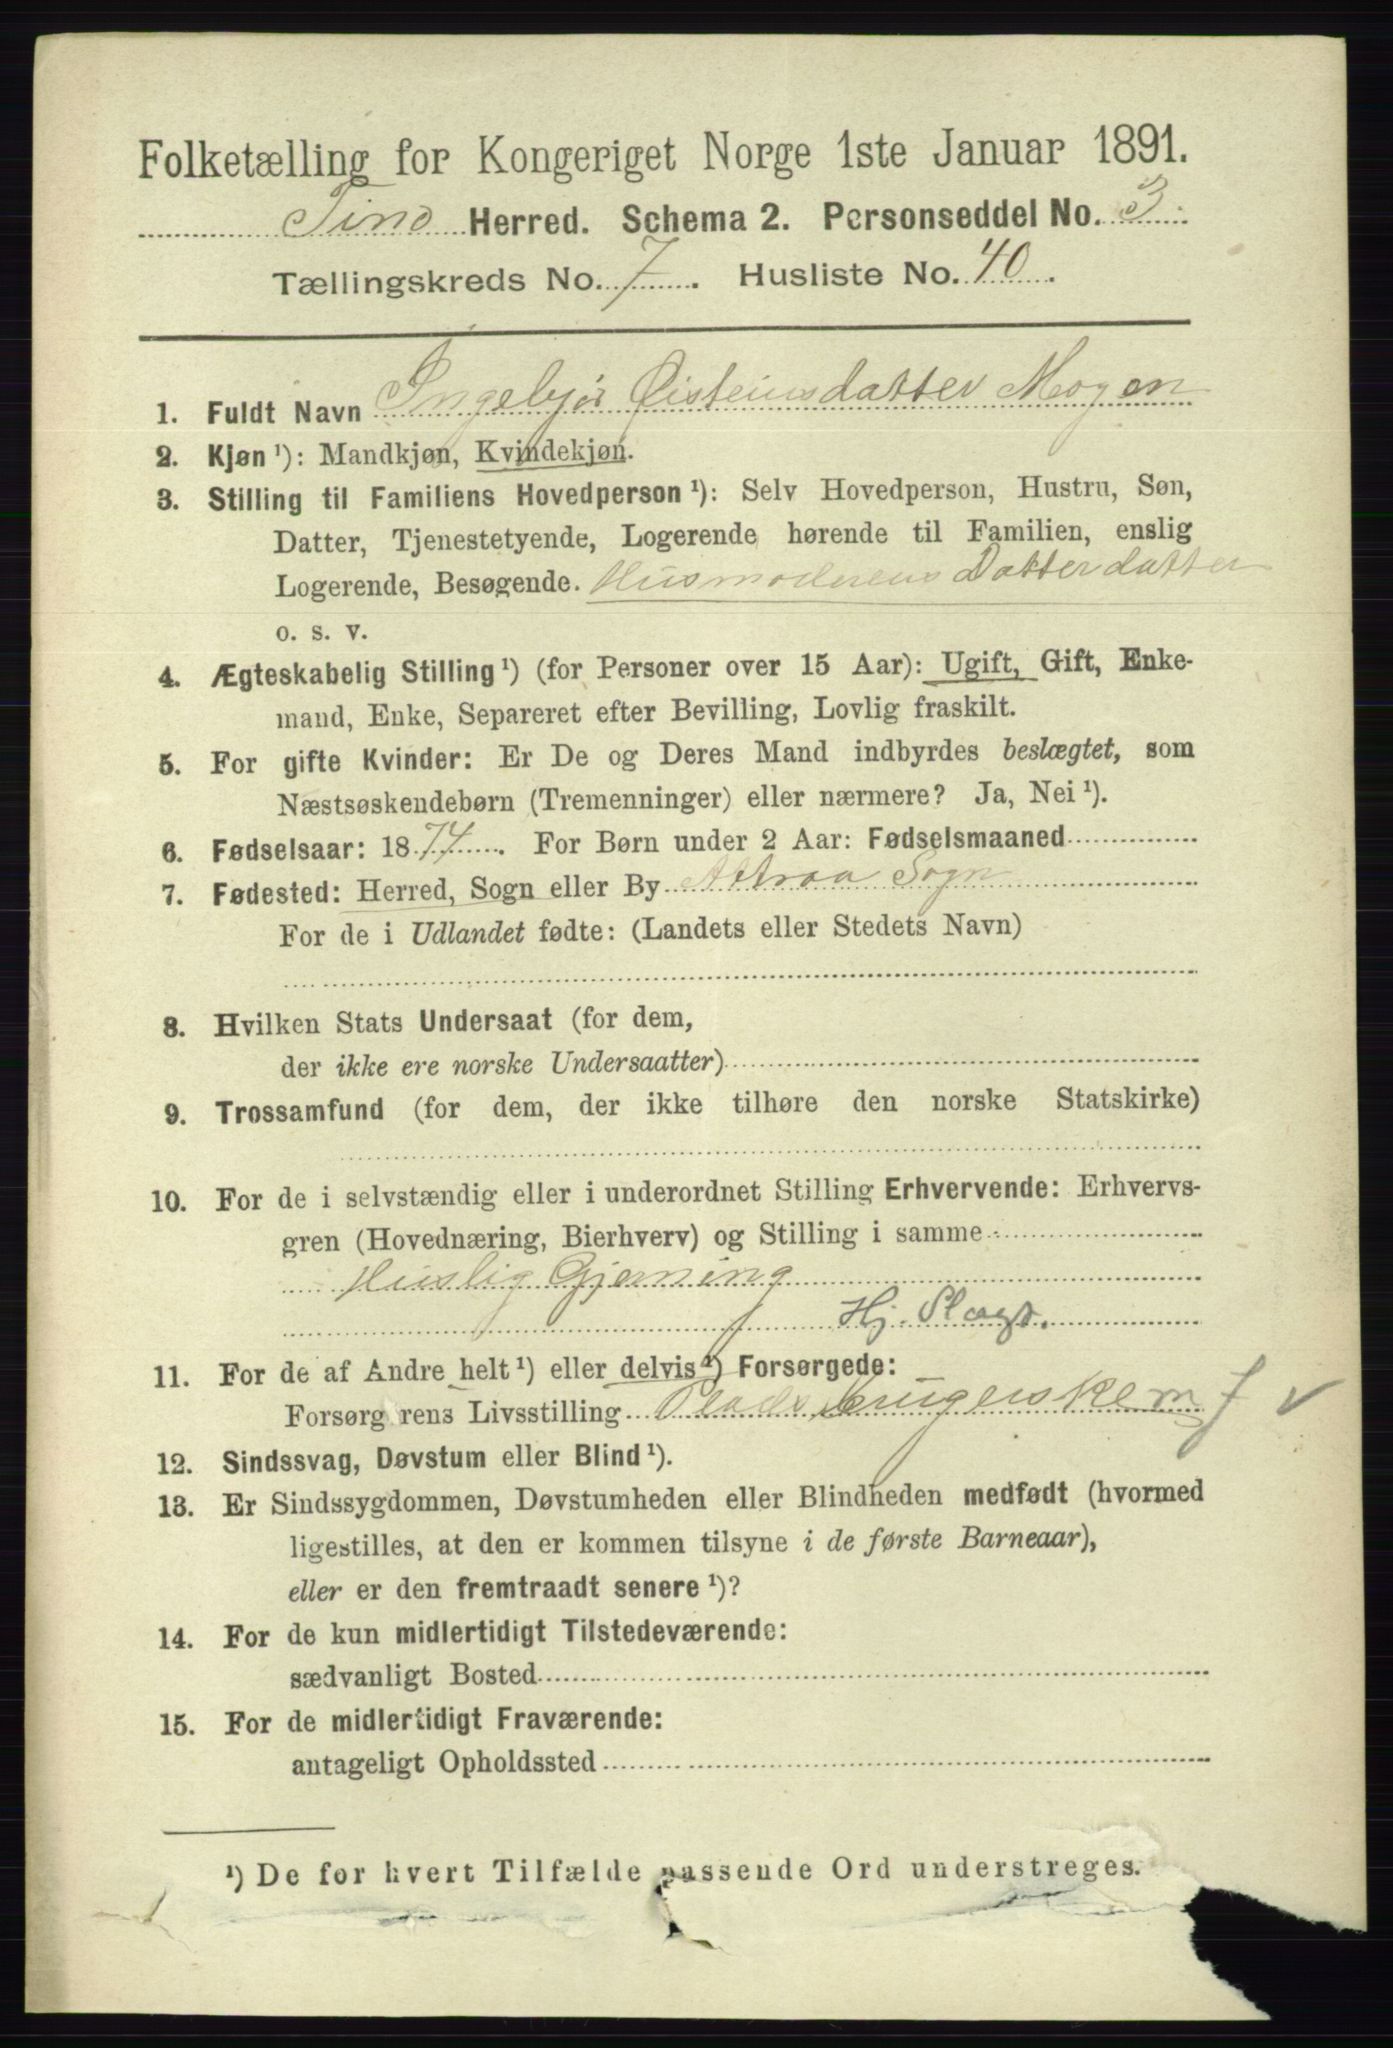 Folketælling for Kongeriget Norge 1ste Januar 1891.
Tind Herred. Schema 2. Personseddel No. 3.
Tællingskreds No. 7. Husliste No. 40.
1. Fuldt Navn Ingebjør Øisteinsdatter Mogen
2. Kjøn ¹): Mandkjøn, Kvindekjøn.
3. Stilling til Familiens Hovedperson ¹): Selv Hovedperson, Hustru, Søn,
Datter, Tjenestetyende, Logerende hørende til Familien, enslig
Logerende, Besøgende. Husmoderens Datterdatter
o. s. v.
4. Ægteskabelig Stilling ¹) (for Personer over 15 Aar): Ugift, Gift, Enke-
mand, Enke, Separeret efter Bevilling, Lovlig fraskilt.
5. For gifte Kvinder: Er De og Deres Mand indbyrdes beslægtet, som
Næstsøskendebørn (Tremenninger) eller nærmere? Ja, Nei ¹).
6. Fødselsaar: 1874. For Børn under 2 Aar: Fødselsmaaned
7. Fødested: Herred, Sogn eller By Attraa Sogn
For de i Udlandet fødte: (Landets eller Stedets Navn)
8. Hvilken Stats Undersaat (for dem,
der ikke ere norske Undersaatter)
9. Trossamfund (for dem, der ikke tilhøre den norske Statskirke)
10. For de i selvstændig eller i underordnet Stilling Erhvervende: Erhvervs-
gren (Hovednæring, Bierhverv) og Stilling i samme
Huslig Gjerning
Hj. Slags.
11. For de af Andre helt ¹) eller delvis ¹) Forsørgede:
Forsørg rens Livsstilling Pladsbrugerske m f v
12. Sindssvag, Døvstum eller Blind ¹).
13. Er Sindssygdommen, Døvstumheden eller Blindheden medfødt (hvormed
ligestilles, at den er kommen tilsyne i de første Barneaar),
eller er den fremtraadt senere ¹)?
14. For de kun midlertidigt Tilstedeværende:
sædvanligt Bosted
15. For de midlertidigt Fraværende:
antageligt Opholdssted
¹) De for hvert Tilfælde passende Ord understreges.